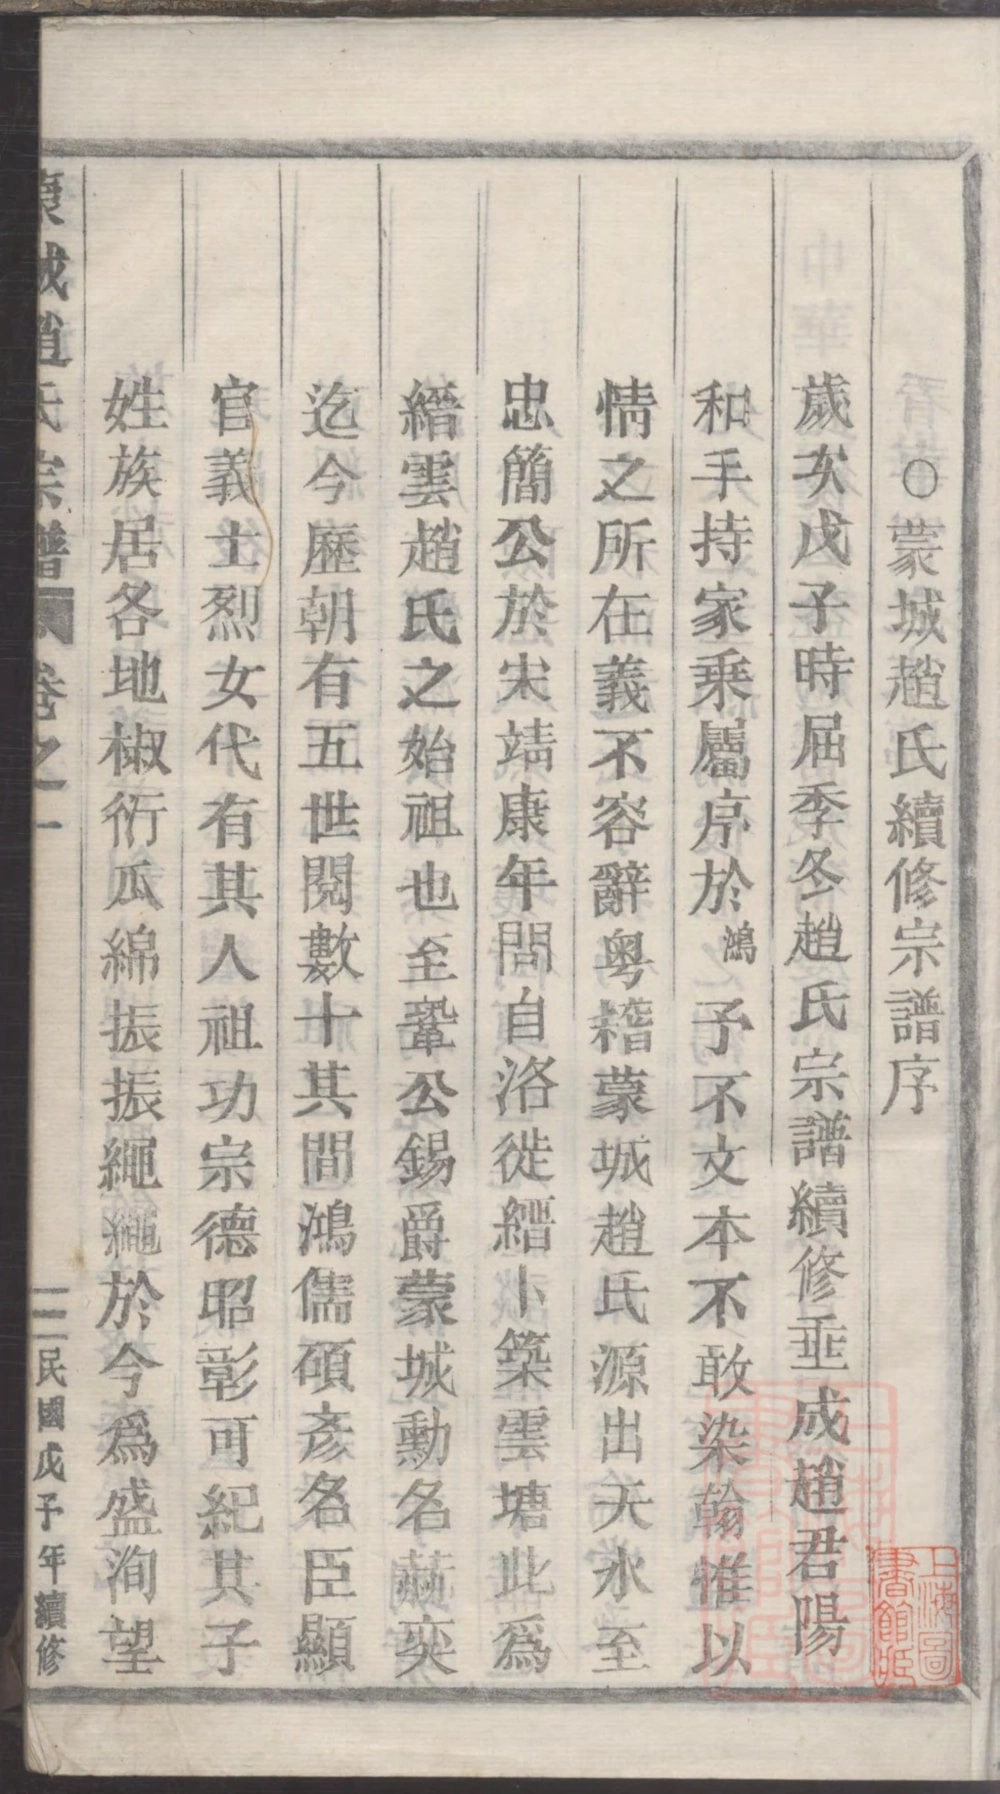 ○蒙城趙氏續修宗譜序
歲次戊子時屆季冬趙氏宗譜續修垂成趙君陽
和手持家乘屬序於鴻予不文本不敢染翰惟以
情之所在義不容辭粤稽蒙城趙氏源出天水至
忠簡公於宋靖康年間自洛徙縉卜築雲塘此爲
縉雲趙氏之始祖也至鞏公錫爵蒙城勳名赫奕
迄今歷朝有五世閱數十其間鴻儒碩彥名臣顯
官義士烈女代有其人祖功宗德昭彰可紀其子
姓族居各地椒衍瓜綿振振繩繩於今爲盛洵望
蒙城趙氏宗譜 卷之一 民國戊子年續修
上海圖書館藏